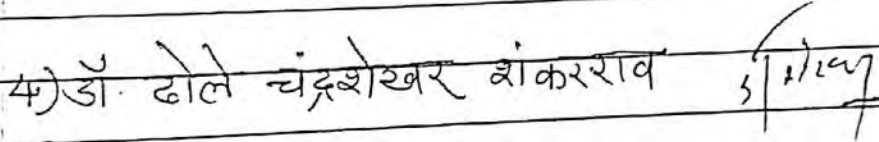 4) डॉ. ढोले चंद्रशेखर शंकरराव